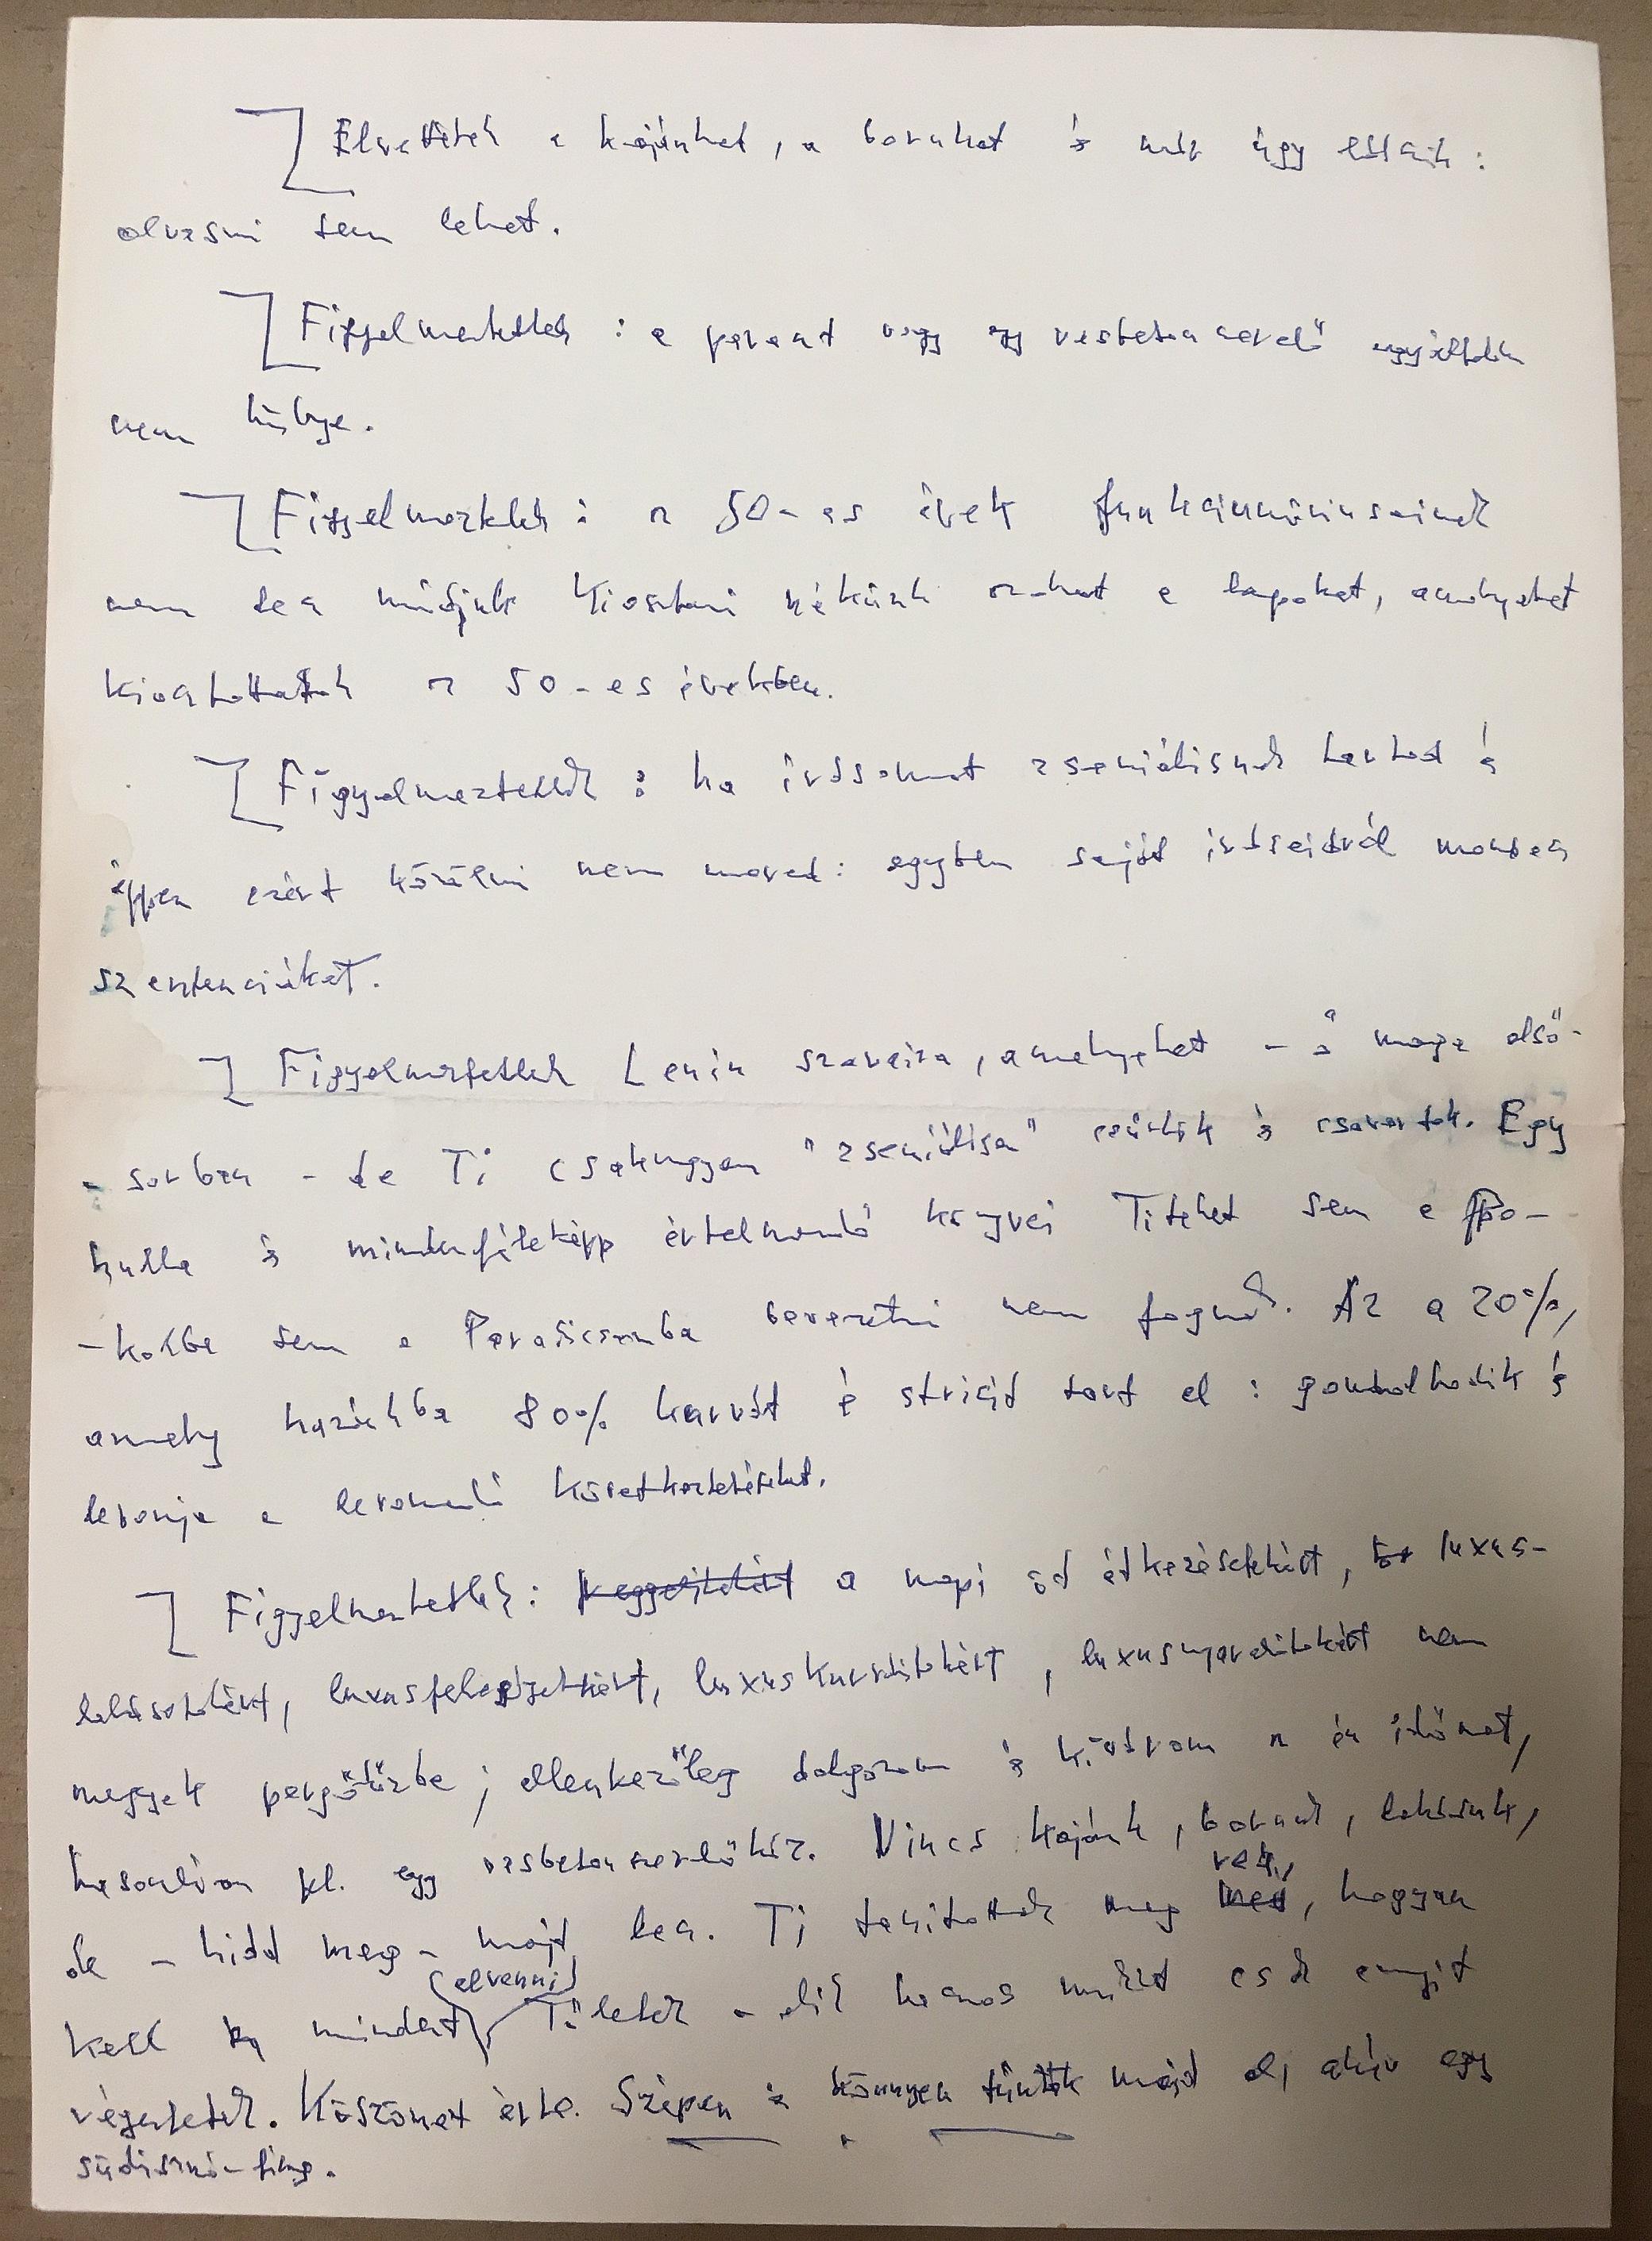 Elvettétek a kajánkat, a borunkat és már úgy látszik:
olvasni sem lehet.
Figyelmeztetlek: a paraszt vagy egy vasbetonszerelő egyáltalán
nem hülye.
Figyelmeztetlek: az 50-es évek funkcionáriusainak
nem lesz módjuk kiosztani nékünk azokat a lapokat, amelyeket
kiosztottatok az 50-es években.
Figyelmeztetlek: ha írásomat zseniálisnak tartod és
éppen ezért közölni nem mered: egyben saját írásaidról mondasz
szentenciákat.
Figyelmeztetlek Lenin szavaira, amelyeket – ő maga első-
- sorban – de Ti csakugyan "zseniálisan" csűrtök és csavartok. Egy
hulla és mindenféleképp értelmondó könyvei Titeket sem a Po-
-kolba sem a Paradicsomba bevezetni nem fognak. Az a 20%,
amely hazánkba 80% kurvát és stricit tart el: gondolkodik és
levonja a levonandó következtetéseket.
Figyelmeztetlek: a napi öt étkezésetekért, luxus-
lakásotokért, luxusfeleségetekért, luxuskurvátokért, luxusnyaralótokért nem
megyek pergőtűzbe; ellenkezőleg dolgozom és kivárom az én időmet,
hasonlóan pl. egy vasbetonszerelőhöz. Nincs kajánk, borunk, lakásunk,
de – hidd meg – majd lesz. Ti tanítottatok meg rá, hogyan
kell mindent (elvenni) Tőletek – alik hasznos munkát csak ennyit
végeztetek. Köszönet érte. Szépen és könnyen tűntök majd el, akár egy
süldisznó-fing.